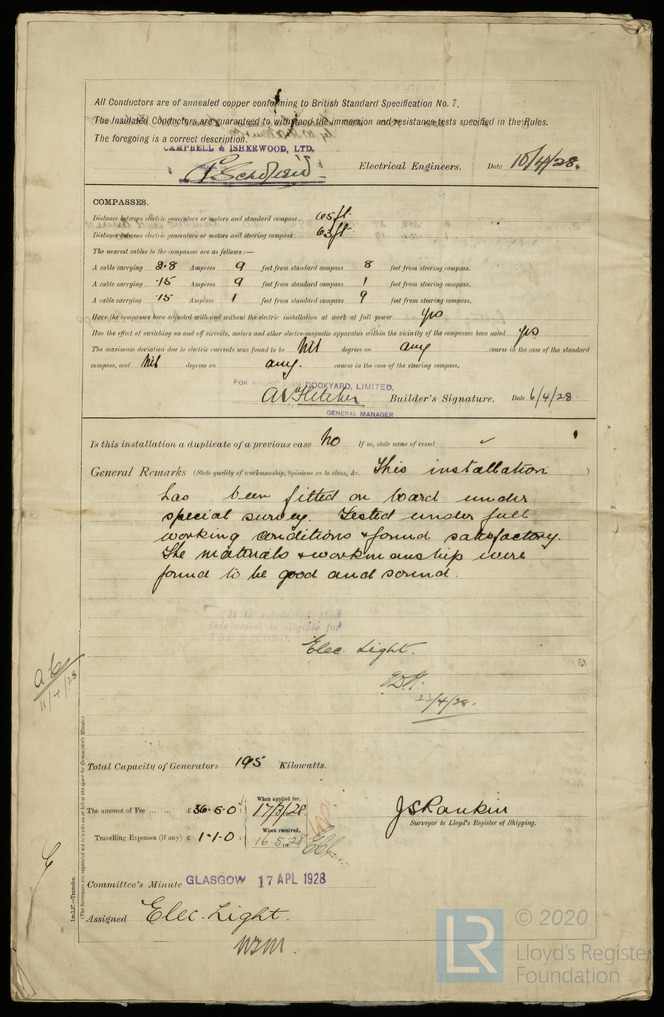 All Conductors are of annealed copper conforming to British Standard Specification No. 7.
The Insulated Conductors are guaranteed to withstand the immersion and resistance tests specified in the Rules.
The foregoing is a correct description.
CAMPBELL & ISHERWOOD, LTD.
Electrical Engineers. Date 10/4/28.
COMPASSES.
Distance between electric generators or motors and standard compass 65 ft.
Distance between electric generators or motors and steering compass 63 ft.
The nearest cables to the compasses are as follows:—
A cable carrying 2.8 Ampères 9 feet from standard compass 8 feet from steering compass.
A cable carrying .15 Ampères 9 feet from standard compass 1 feet from steering compass.
A cable carrying .15 Ampères 1 feet from standard compass 9 feet from steering compass.
Have the compasses been adjusted with and without the electric installation at work at full power yes
Has the effect of switching on and off circuits, motors and other electro-magnetic apparatus within the vicinity of the compasses been noted yes
The maximum deviation due to electric currents was found to be Nil degrees on any course in the case of the standard
compass, and Nil degrees on any. course in the case of the steering compass.
FOR DOCKYARD, LIMITED,
Fletcher Builder's Signature. Date 6/4/28
GENERAL MANAGER
Is this installation a duplicate of a previous case No If so, state name of vessel
General Remarks (State quality of workmanship, opinions as to class, &c. This installation )
has been fitted on board under
special survey. Tested under full
working conditions & found satisfactory.
The materials & workmanship were
found to be good and sound.
It is submitted that
this vessel is eligible for
THE RECORD.
Elec Light.
23/4/28.
11/4/28
Total Capacity of Generators 195 Kilowatts.
The amount of Fee ... ... £ 36-5-0 : When applied for, 17/3/28
Travelling Expenses (if any) £ 1-1-0 : When received, 16.5.28
JSRankin
Surveyor to Lloyd's Register of Shipping.
Committee's Minute GLASGOW 17 APL 1928
Assigned Elec. Light.
1m.1,27.—Transfer.
(The Surveyors are requested not to write on or below the space for Committee's Minute.)
LR
© 2020
Lloyd's Register
Foundation